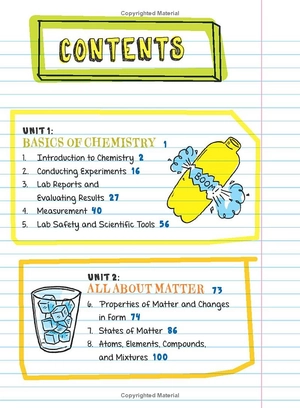 Copyrighted Material
CONTENTS
UNIT 1:
BASICS OF CHEMISTRY 1
1. Introduction to Chemistry 2
2. Conducting Experiments 16
3. Lab Reports and
Evaluating Results 27
4. Measurement 40
5. Lab Safety and Scientific Tools 56
BOOM
UNIT 2:
ALL ABOUT MATTER 73
6. Properties of Matter and Changes
in Form 74
7. States of Matter 86
8. Atoms, Elements, Compounds,
and Mixtures 100
Copyrighted Material